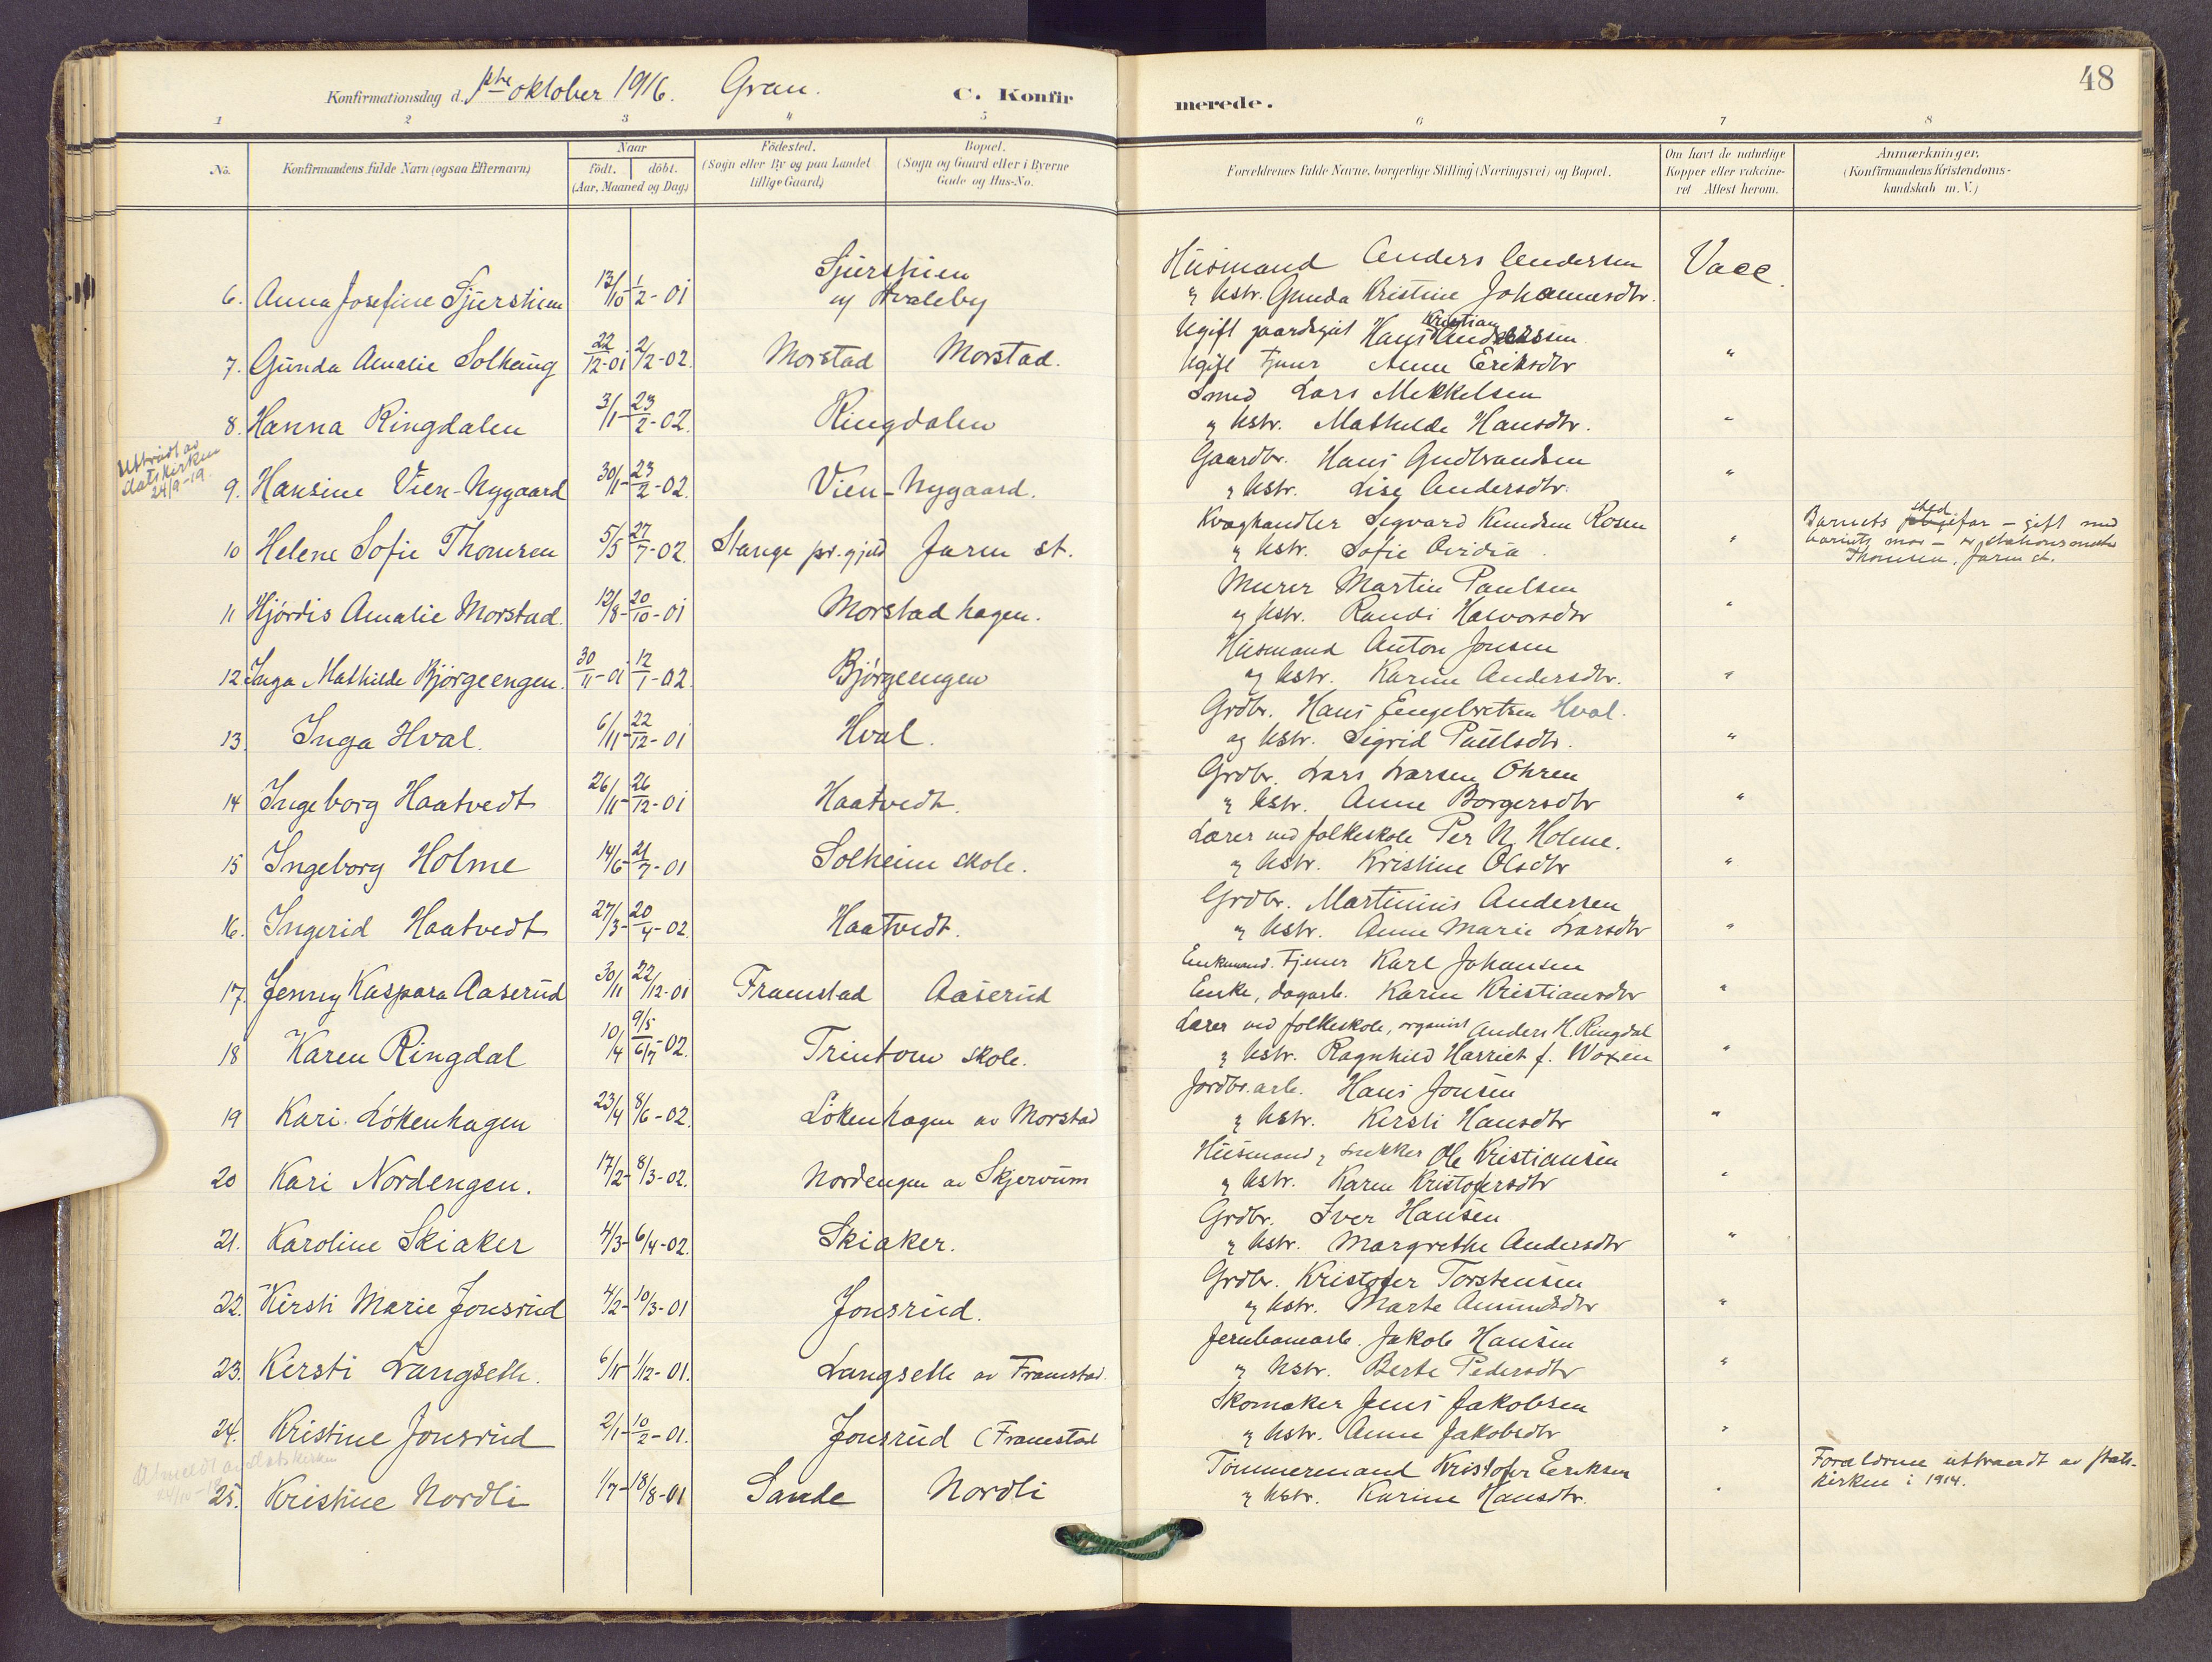 48
Konfirmationsdag d. 1ste oktober 1916. Gran. C. Konfirmerede.
1 2 3 4 5 6 7 8
No. Konfirmandens fulde Navn (ogsaa Efternavn) Naar født. døbt. (Aar, Maaned og Dag) Fødested. (Sogn eller By og paa Landet tillige Gaard) Bopæl. (Sogn og Gaard eller i Byerne Gade og Hus-No. Forældrenes fulde Navne, borgerlige Stilling (Næringsvei) og Bopæl. Om havt de naturlige Kopper eller vakcineret Attest herom. Anmærkninger. (Konfirmandens Kristendomskundskab m. V.)
6. Anna Josefine Sjurstuen 13/10 - 1/2 - 01 Sjurstuen av Hvaleby Husmand Anders Andersen Vacc.
og hstr. Gunda Kristine Johannesdtr.
7. Gunda Amalie Solhaug 22/12-01 2/2-02. Morstad Morstad. Ugift gaardsgut Hans Kristian Andersen
Ugift tjener Anne Eriksdtr "
8. Hanna Ringdalen 3/1 - 23/2-02. Ringdalen Smed Lars Mikkelsen
og hstr. Mathilde Hansdtr. "
Utträdt av statskirken 24/9-19.
9. Hansine Vien-Nygaard 30/1 - 23/2-02. Vien-Nygaard. Gaardbr. Hans Gudbrandsen
og hstr. Lise Andersdtr. "
10 Helene Sofie Thomsen 5/5 27/7-02. Stange pr.gjeld Jaren st. Kvæghandler Sigvard Knudsen Rosen
og hstr. Sofie Ovidia. " Barnets stedfar - gift med barnets mor - er stationsmester Thomsen. Jaren st.
11 Hjørdis Amalie Morstad. 12/8 - 20/10-01 Morstadhagen. Murer Martin Paulsen
og hstr. Randi Halvorsdtr "
12. Inga Mathilde Bjørgeengen. 30/11-01 12/1-02. Bjørgeengen Husmand Anton Jonsen
og hstr. Karine Andersdtr. "
13. Inga Hval. 6/11 - 22/12-01 Hval. Grdbr. Hans Engebretsen Hval.
og hstr. Sigrid Paulsdtr. "
14 Ingeborg Haatvedt 26/11 - 26/12-01 Haatvedt. Grdbr. Lars Larsen Ohren
og hstr. Anne Borgersdtr "
15 Ingeborg Holme 14/6 - 21/7-01 Solheim skole. Lærer ved folkeskole Per N. Holme.
og hstr. Kristine Olsdtr "
16. Ingerid Haatvedt 27/3 - 20/4-02. Haatvedt. Grdbr. Martinius Andersen
og hstr. Anne Marie Larsdtr "
17. Jenny Kaspara Aaserud 30/11 22/12-01 Framstad Aaserud Enkemand. tjener Karl Johansen
Enke, dagarb. Karen Kristiansdtr "
18 Karen Ringdal 10/4 9/5 6/7-02. Trintom skole. Lærer ved folkeskole, organist Anders H. Ringdal
og hstr. Ragnhild Harriet f. Woxen "
19 Kari Løkenhagen 23/4 8/6-02. Løkenhagen av Morstad Jordbr.arb. Hans Jonsen
og hstr. Kersti Hansdtr "
20 Kari Nordengen. 17/2- 8/3-02. Nordengen av Skjervum Husmand og snekker Ole Kristiansen
og hstr. Karen Kristofersdtr "
21. Karoline Skiaker 4/3- 6/4-02. Skiaker. Grdbr. Iver Hansen
og hstr. Margrethe Andersdtr "
22. Kirsti Marie Jonsrud 4/2- 10/3-01 Jonsrud. Grdbr. Kristofer Torstensen
og hstr. Marte Amundsdtr "
23. Kersti Langseth. 6/11- 1/12-01. Langseth av Framstad. Jernbanearb. Jakob Hansen
og hstr. Berte Pedersdtr "
24. Kristine Jonsrud 2/1- 10/2-01. Jonsrud (Framstad Skomaker Jens Jakobsen
og hstr. Anne Jakobsdtr "
Utmeldt av statskirken
25. Kristine Nordli 1/7- 18/8-01 Sande Nordli Tømmermand Kristofer Eriksen
og hstr. Karine Hansdtr. " Forældrene uttraadt av statskirken i 1914.